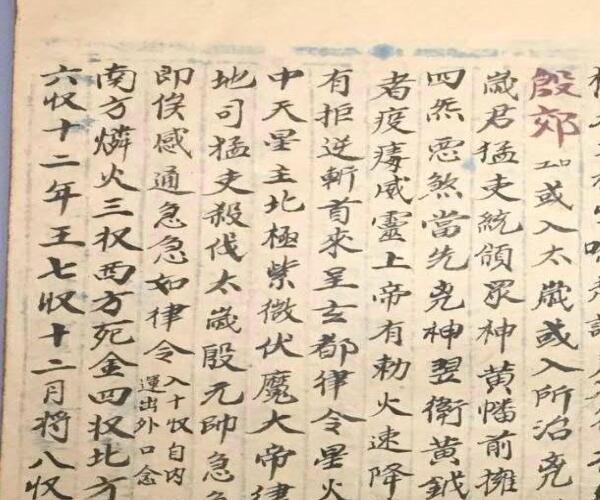 殷郊或入太歲或入所治尭
歲君猛吏統領眾神黃幡前擁
四炁惡煞當先尭神翌衛黃鉞
者疫癘威靈上帝有勅火速降
有拒逆斬首來呈玄都律令星火
中天星主北極紫微伏魔大帝律
地司猛吏殺伐太歲殷元帥急
即俟感通急急如律令入十収自内
運出外口念
南方燐火三収西方死金四収北方
六収十二年王七収十二月將八収